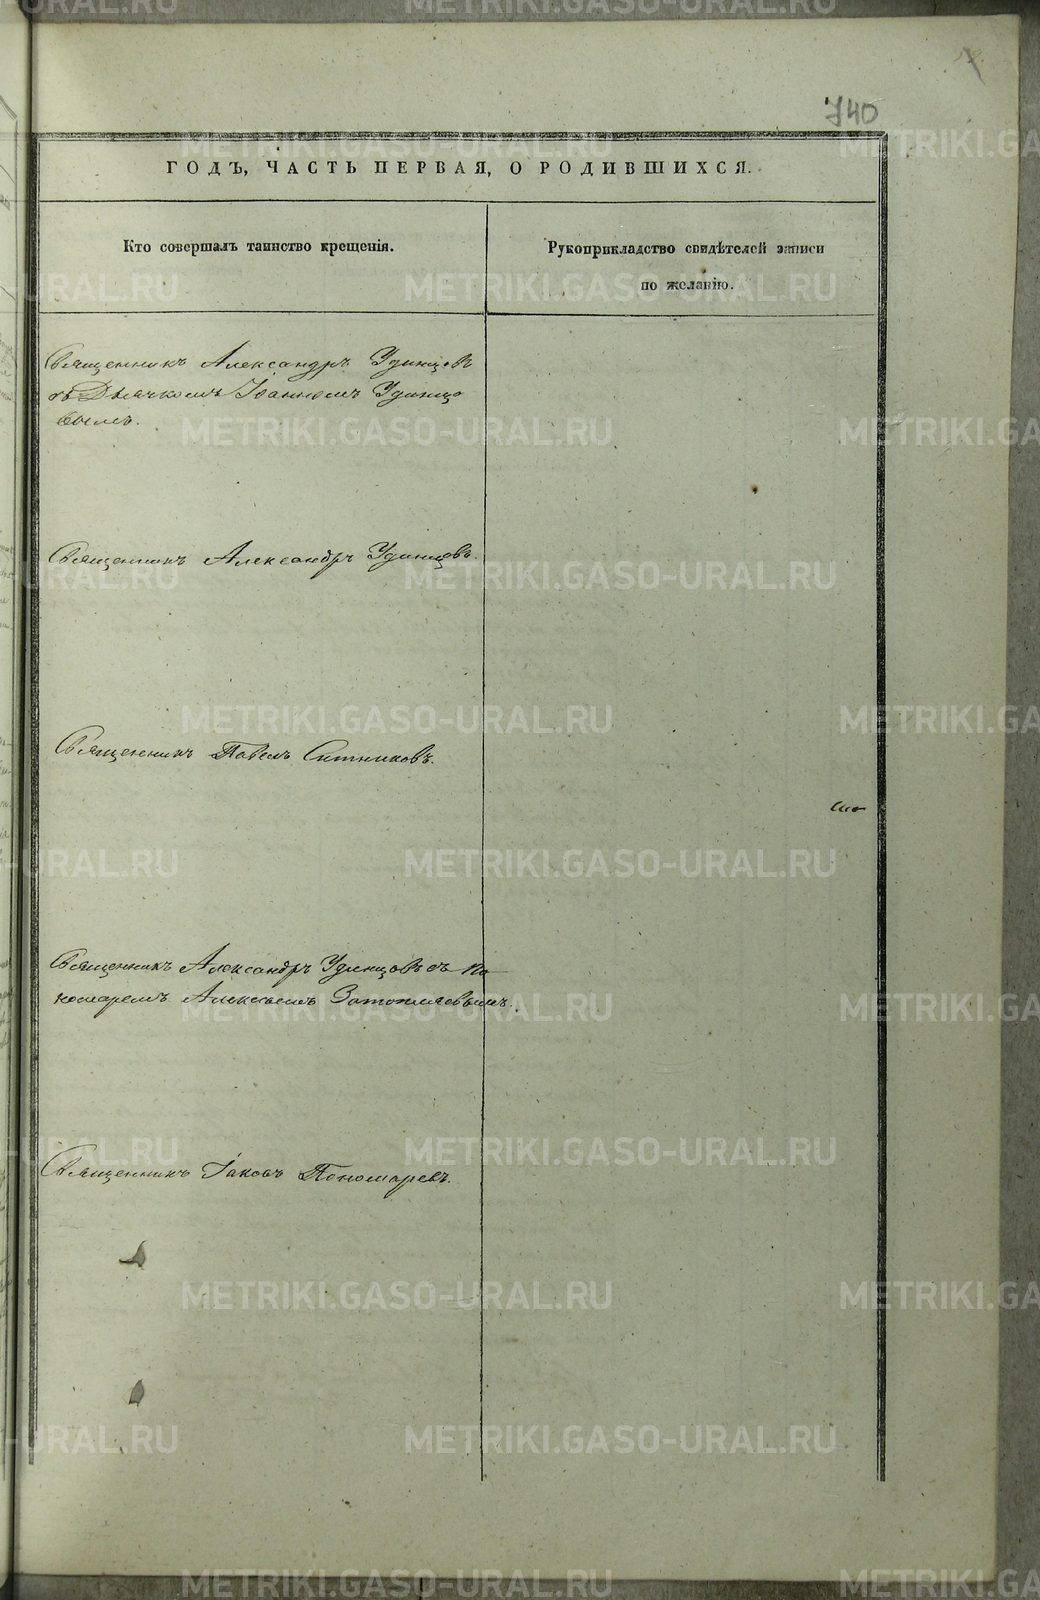 740
ГОДЪ, ЧАСТЬ ПЕРВАЯ, О РОДИВШИХСЯ.
Кто совершалъ таинство крещенія.
Рукоприкладство свидѣтелей записи
по желанію.
Священникъ Александръ Удинцовъ
съ Дьячкомъ Іоанномъ Удинцо
вымъ.
Священникъ Александръ Удинцовъ.
Священникъ Павелъ Ситниковъ.
Священникъ Александръ Удинцовъ съ По
номаремъ Алексѣемъ
Священникъ Іаковъ Пономаревъ.
METRIKI.GASO-URAL.RU